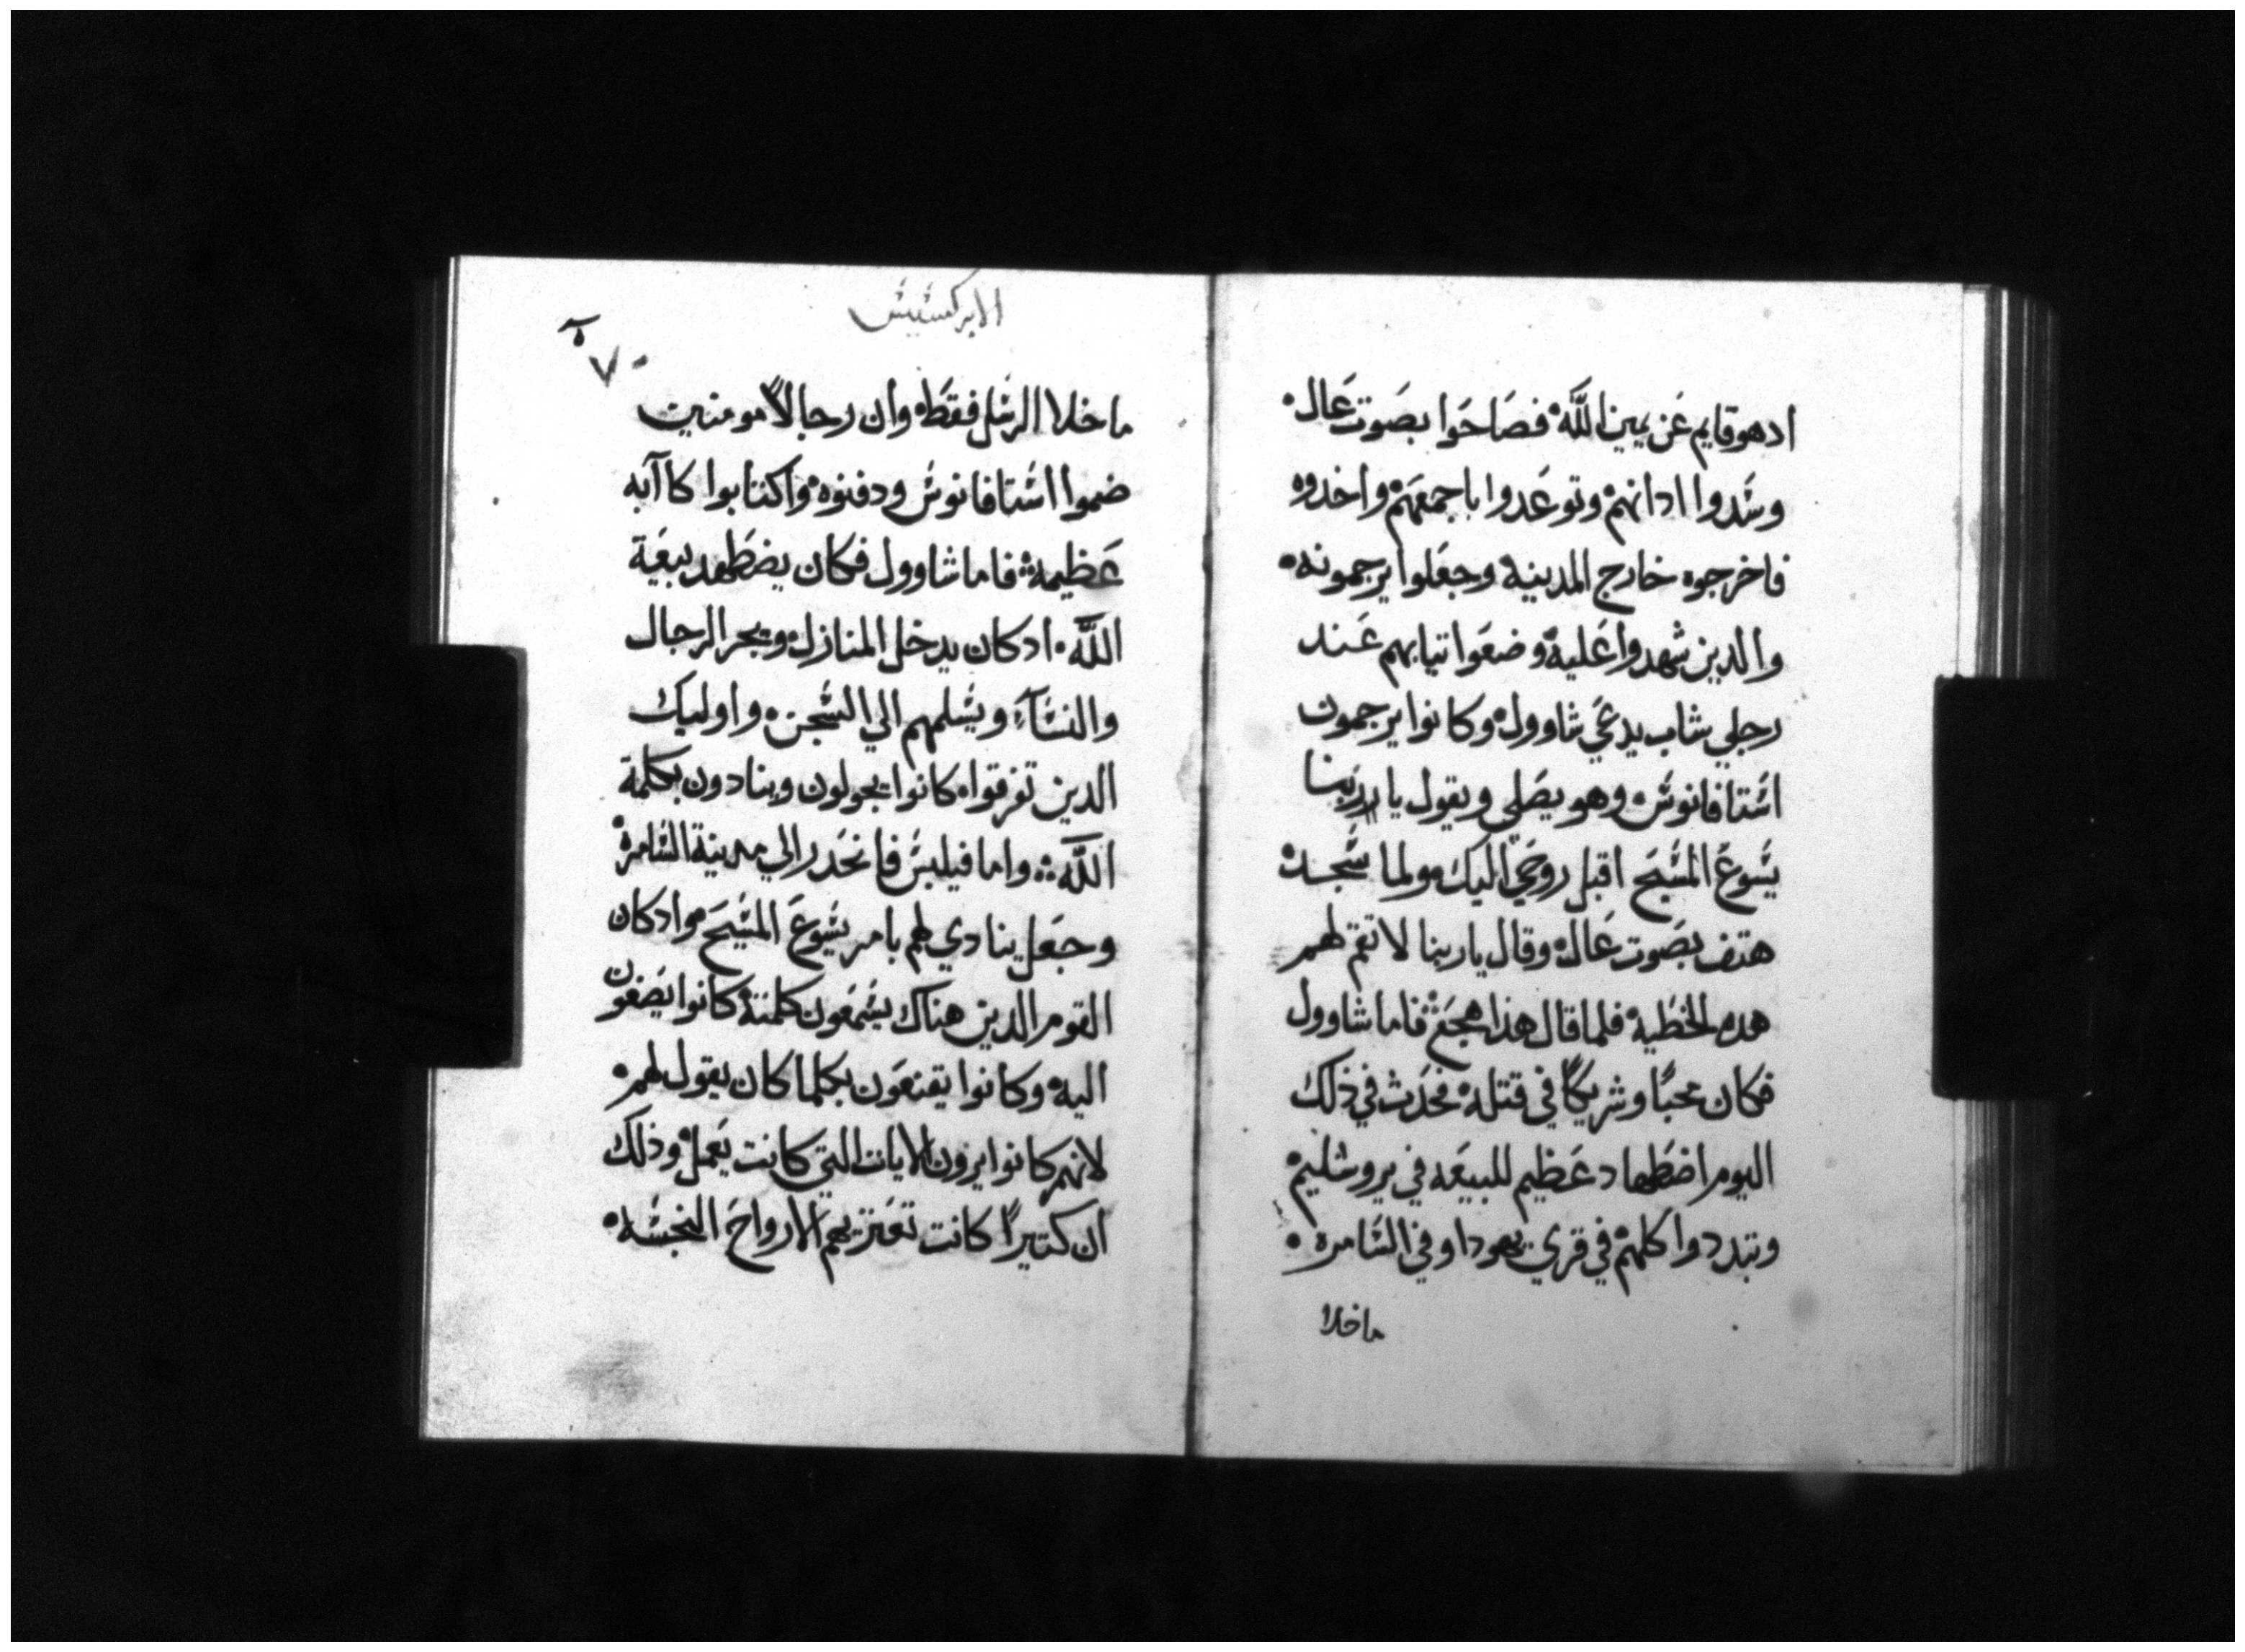 ادهوقايم عَن يمين اللَّه فصَاحَوا بصَوت عَال
وسَدوا ادانهم وتوعَدوا باجمعَهم واخدوه
فاخرجوه خارج المدينه وجعَلوا يرجمونه
والدين شهدوا عَليه وضعَوا تيابهم عَند
رجلي شاب يدعَي شاوول وكانوا يرجمون
اسَتافانوسَ وهو يصَلي ويقول يا ربنا
يسَوعَ المسَيحَ اقبل روحَي اليك ولما سَجد
هتف بصَوت عَال وقال يا ربنا لا تقم لهم
هده الخطَيه فلما قال هذا هجعَ فاما شاوول
فكان محبًا وشريكًا في قتله فحَدث في ذلك
اليوم اضطَهاد عَظيم للبيعَه في يروشليم
وتبددوا كلهم في قري يهودا وفي السَامره
ماخلا
الابركسَيسَ
٧٠
ماخلا الرسَل فقطَ وان رجالاً مومنين
ضموا اسَتافانوسَ ودفنوه واكتابوا كاآبه
عَظيمه فاما شاوول فكان يضطَهد بيعَة
اللَّه ادكان يدخل المنازل ويجر الرجال
والنسَآءِ ويسَلمهم الي السَجن واوليك
الدين تفرقوا كانوا يجولون وينادون بكلمة
اللَّه واما فيلبسَ فانحَدر الي مدينة السَامره
وجعَل ينادي لهم بامر يسَوعَ المسَيحَ وادكان
القوم الدين هناك يسَمعَون كلمته كانوا يصَغون
اليه وكانوا يقنعَون بكلما كان يقول لهم
لانهم كانوا يرون الايات التي كانت يَعمل وذلك
ان كتيرًا كانت تعَتريهم الارواحَ النجسَه